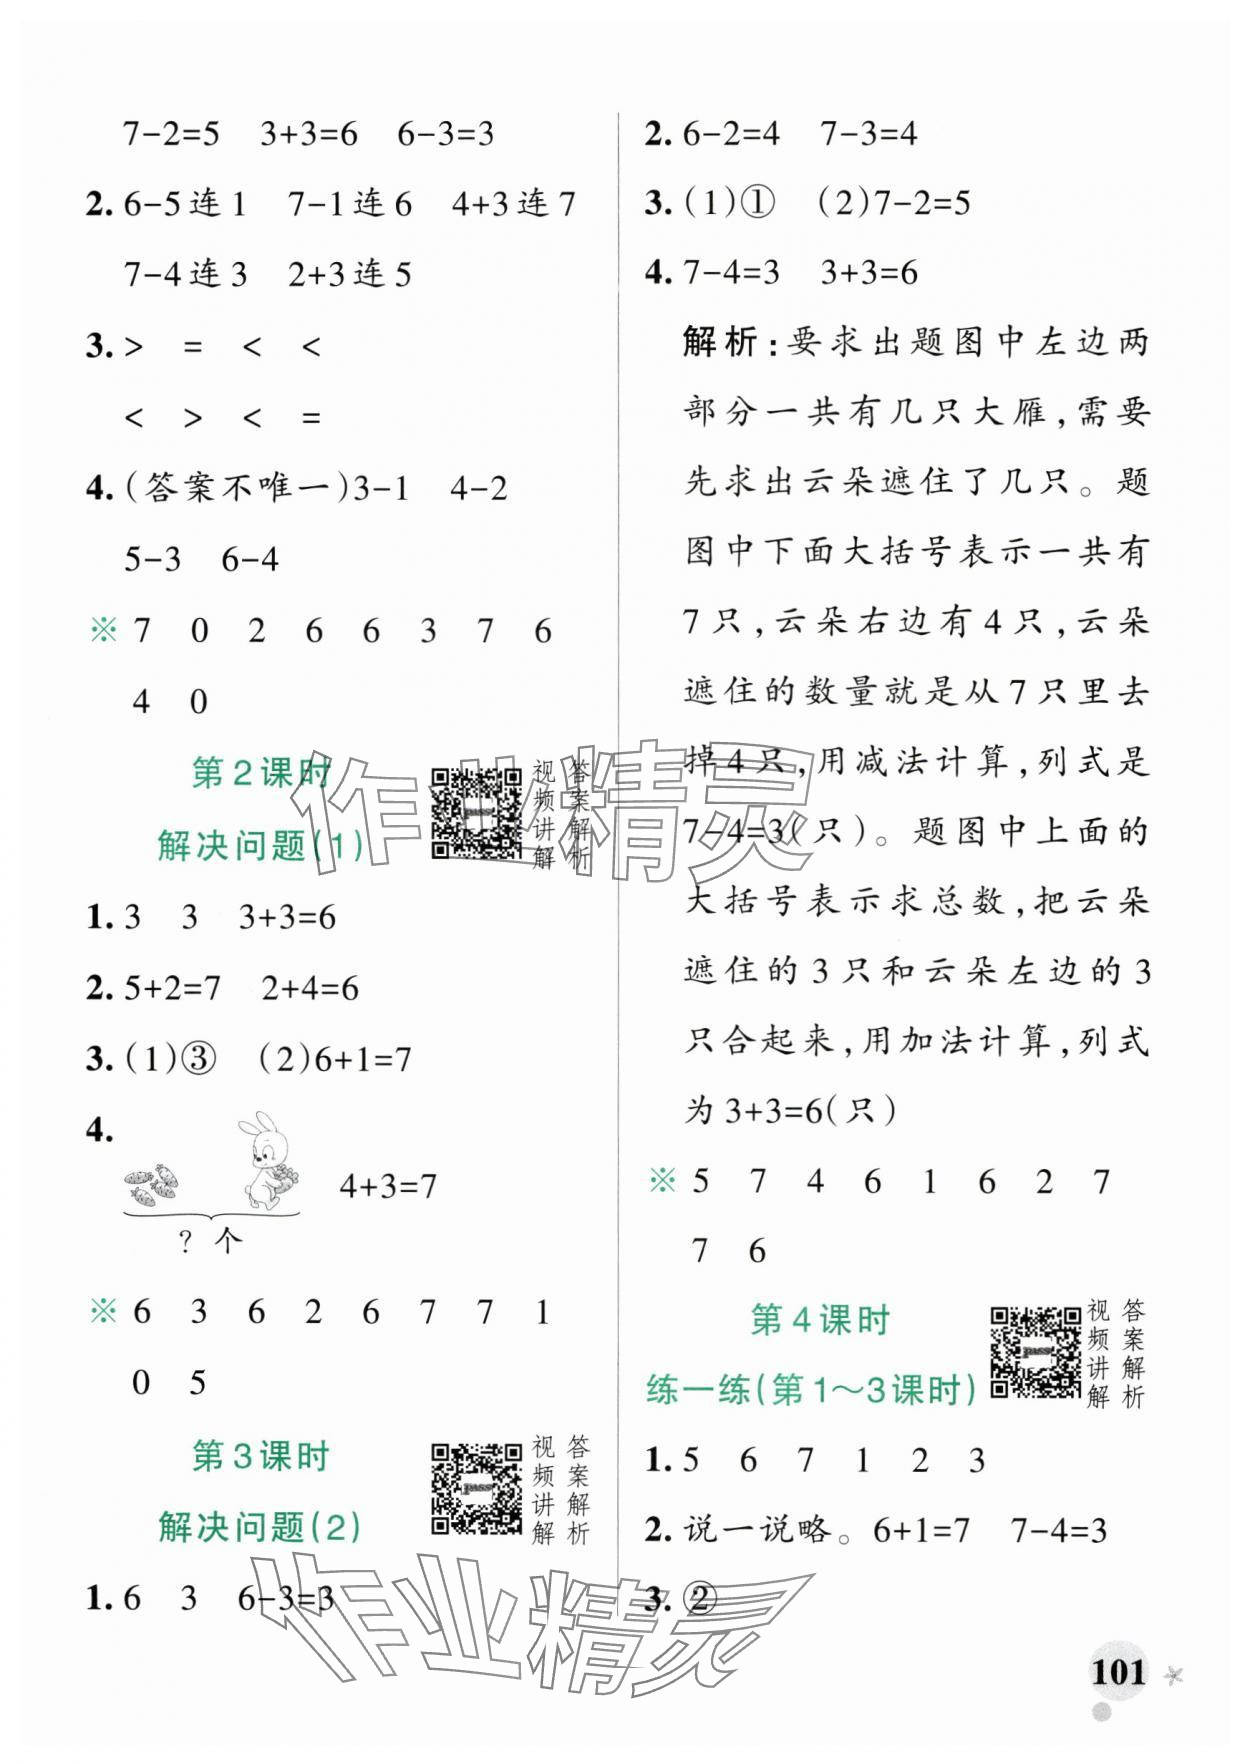 7-2=5 3+3=6 6-3=3
2. 6-5连1 7-1连6 4+3连7
7-4连3 2+3连5
3. > = < <
< > < =
4. (答案不唯一)3-1 4-2
5-3 6-4
※ 7 0 2 6 6 3 7 6
4 0
第2课时
解决问题(1)
视频讲解
答案解析
1. 3 3 3+3=6
2. 5+2=7 2+4=6
3. (1)③ (2)6+1=7
4.
4+3=7
? 个
※ 6 3 6 2 6 7 7 1
0 5
第3课时
解决问题(2)
视频讲解
答案解析
1. 6 3 6-3=3
2. 6-2=4 7-3=4
3. (1)① (2)7-2=5
4. 7-4=3 3+3=6
解析:要求出题图中左边两
部分一共有几只大雁,需要
先求出云朵遮住了几只。题
图中下面大括号表示一共有
7只,云朵右边有4只,云朵
遮住的数量就是从7只里去
掉4只,用减法计算,列式是
7-4=3(只)。题图中上面的
大括号表示求总数,把云朵
遮住的3只和云朵左边的3
只合起来,用加法计算,列式
为3+3=6(只)
※ 5 7 4 6 1 6 2 7
7 6
第4课时
练一练(第1~3课时)
视频讲解
答案解析
1. 5 6 7 1 2 3
2. 说一说略。6+1=7 7-4=3
3. ②
101
作业精灵
作业精灵
pass
pass
pass